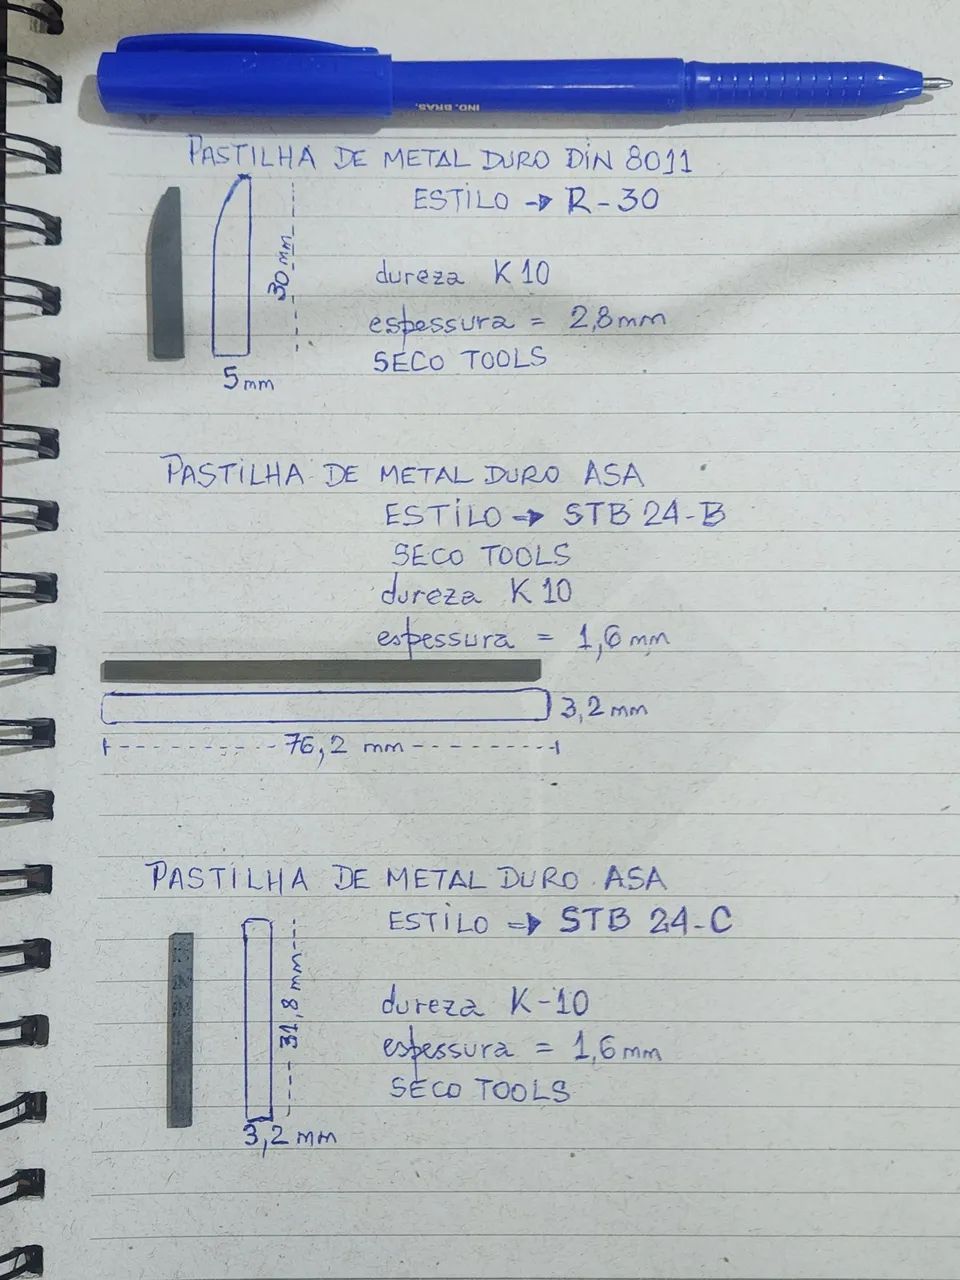 IND. BRAS.
PASTILHA DE METAL DURO DIN 8011
ESTILO → R-30
30 mm
dureza K10
espessura = 2,8mm
SECO TOOLS
5mm
PASTILHA DE METAL DURO ASA
ESTILO → STB 24-B
SECO TOOLS
dureza K10
espessura = 1,6mm
3,2mm
76,2 mm
PASTILHA DE METAL DURO ASA
ESTILO → STB 24-C
31,8 mm
dureza K-10
espessura = 1,6mm
SECO TOOLS
3,2 mm